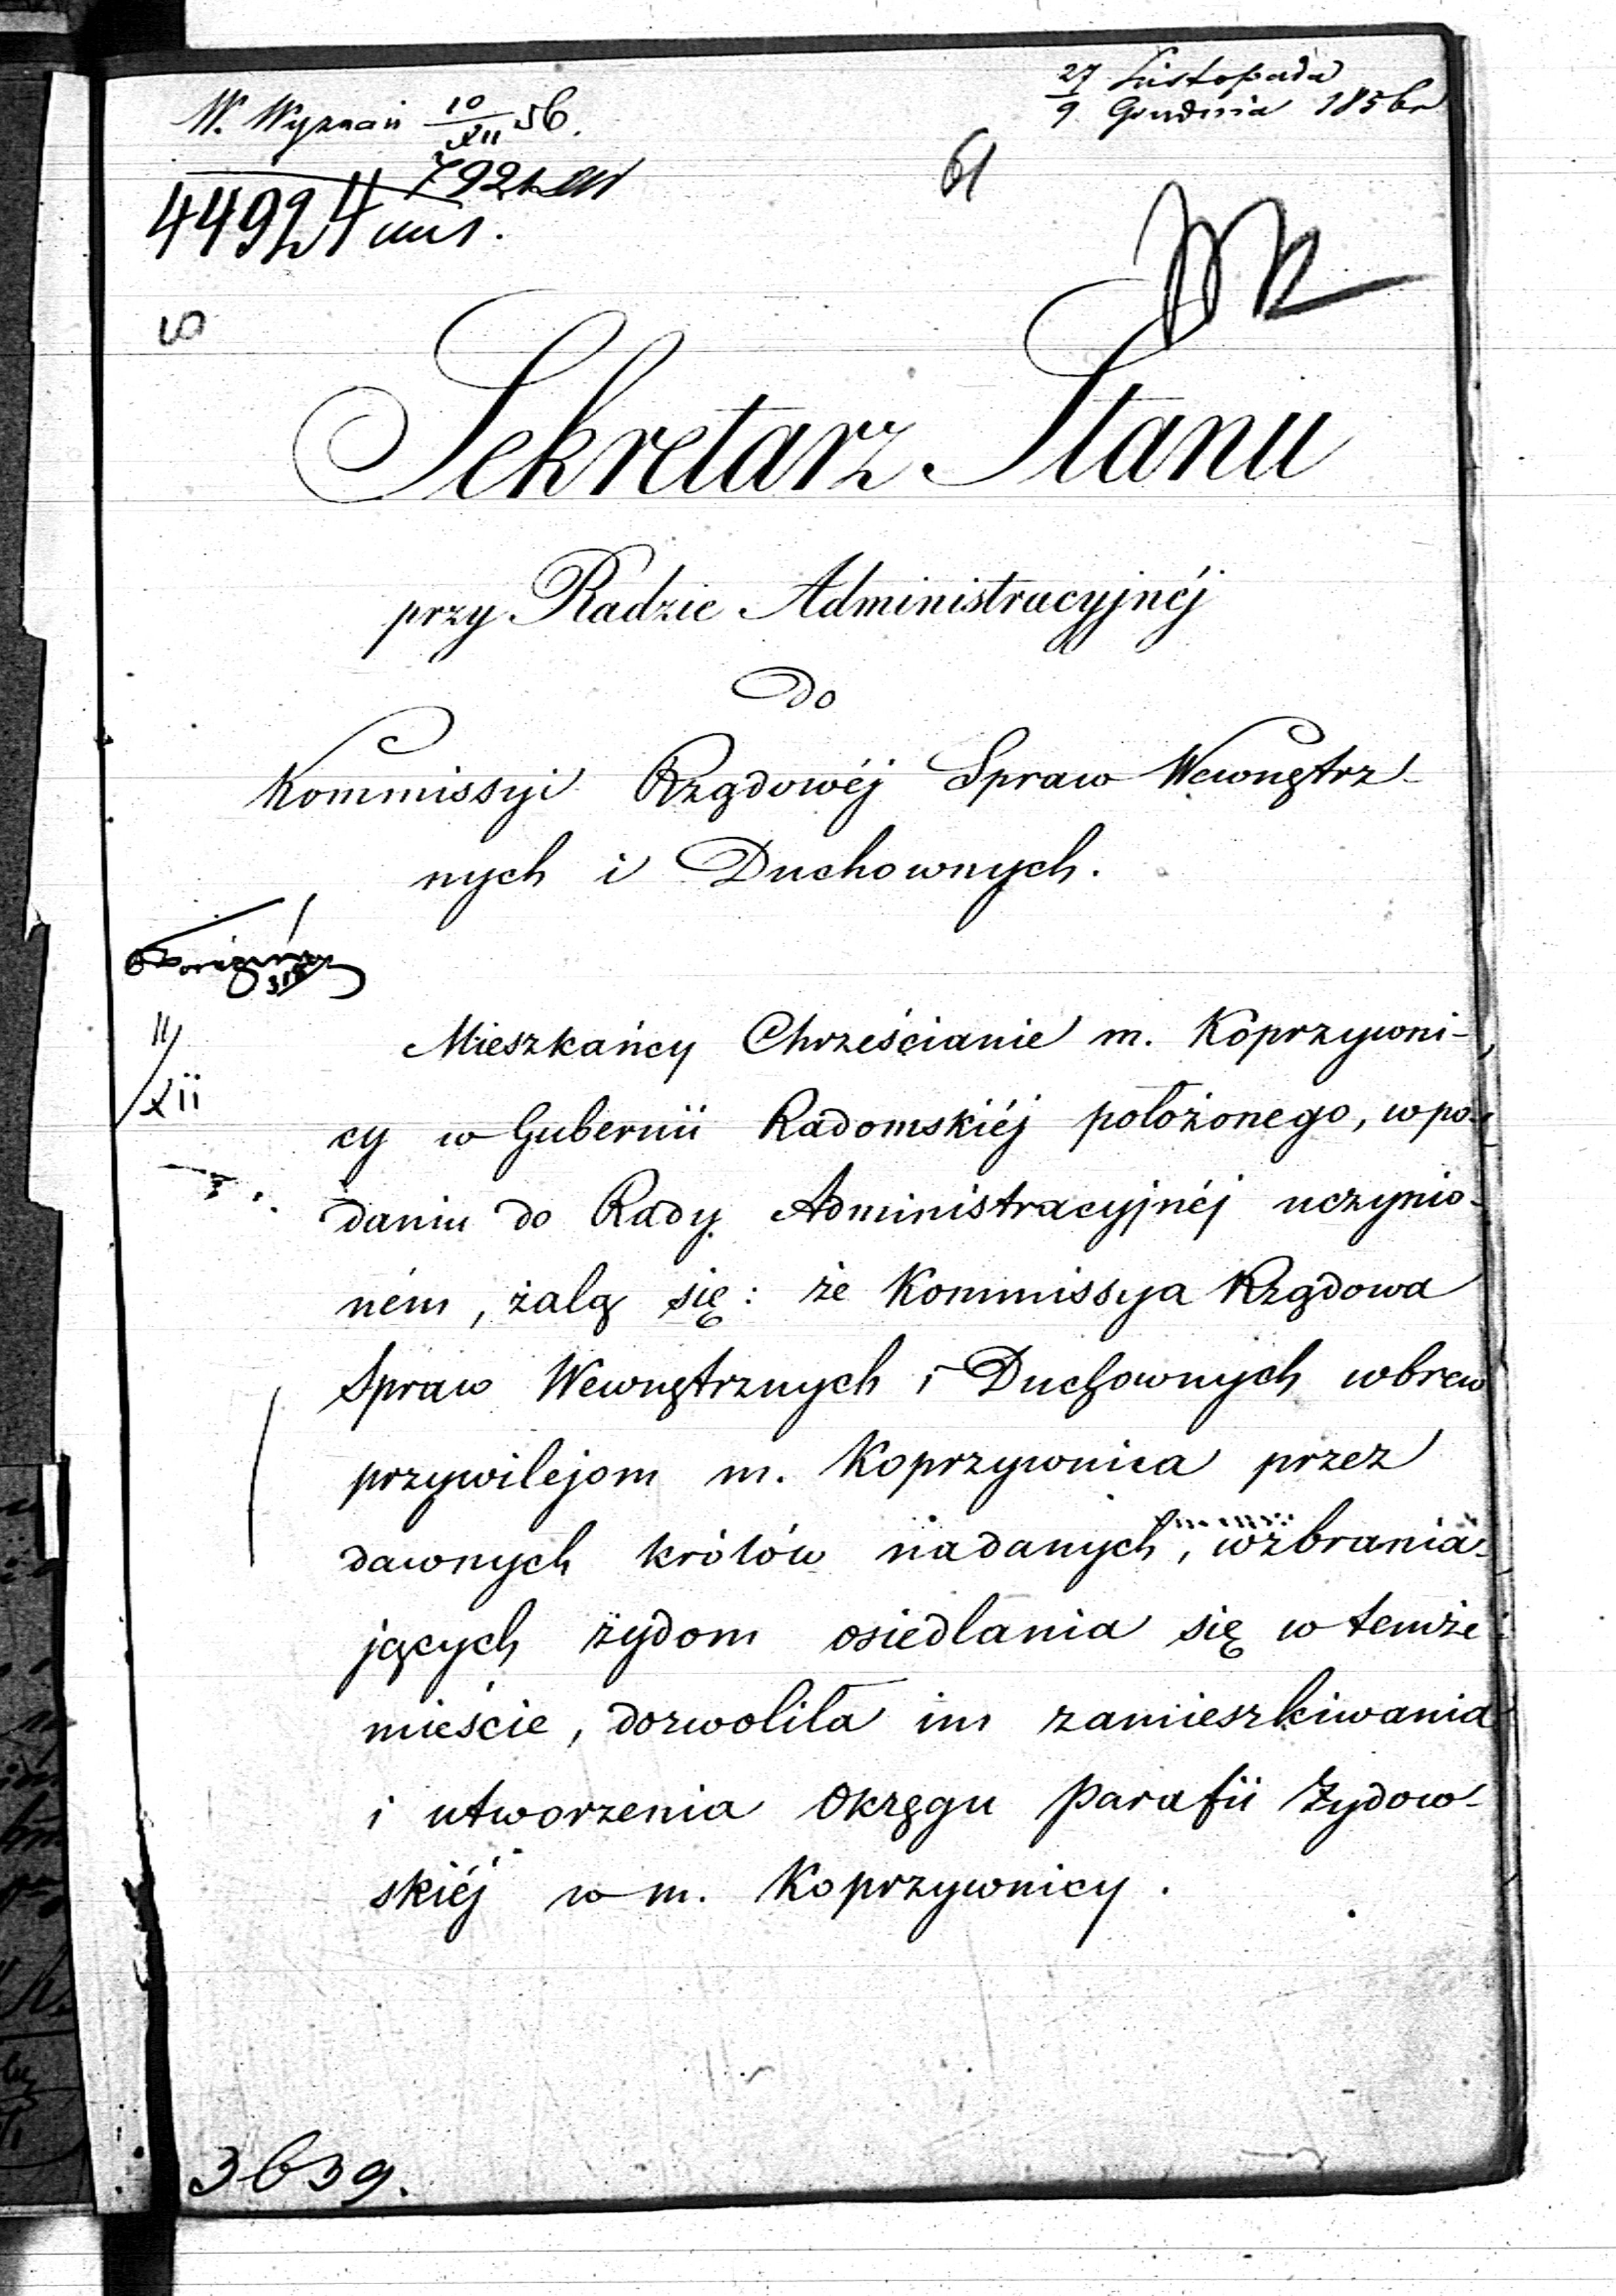 27 Listopada
9 Grudnia 1856 r
W. Wyznań 10/XII 56.
61
44924
Sekretarz Stanu
przy Radzie Administracyjnéj
Do
Kommissyi Rządowéj Spraw Wewnętrz-
nych i Duchownych.
11/XII
Mieszkańcy Chrześcianie m. Koprzywni-
cy w Gubernii Radomskiéj położonego, w po-
daniu do Rady Administracyjnéj uczynio-
ném, żalą się: że Kommissya Rządowa
Spraw Wewnętrznych i Duchownych wbrew
przywilejom m. Koprzywnica przez
dawnych królów nadanych, wzbrania-
jących żydom osiedlania się w temże
mieście, dozwoliła im zamieszkiwania
i utworzenia Okręgu Parafii Żydow-
skiéj w m. Koprzywnicy.
3639.